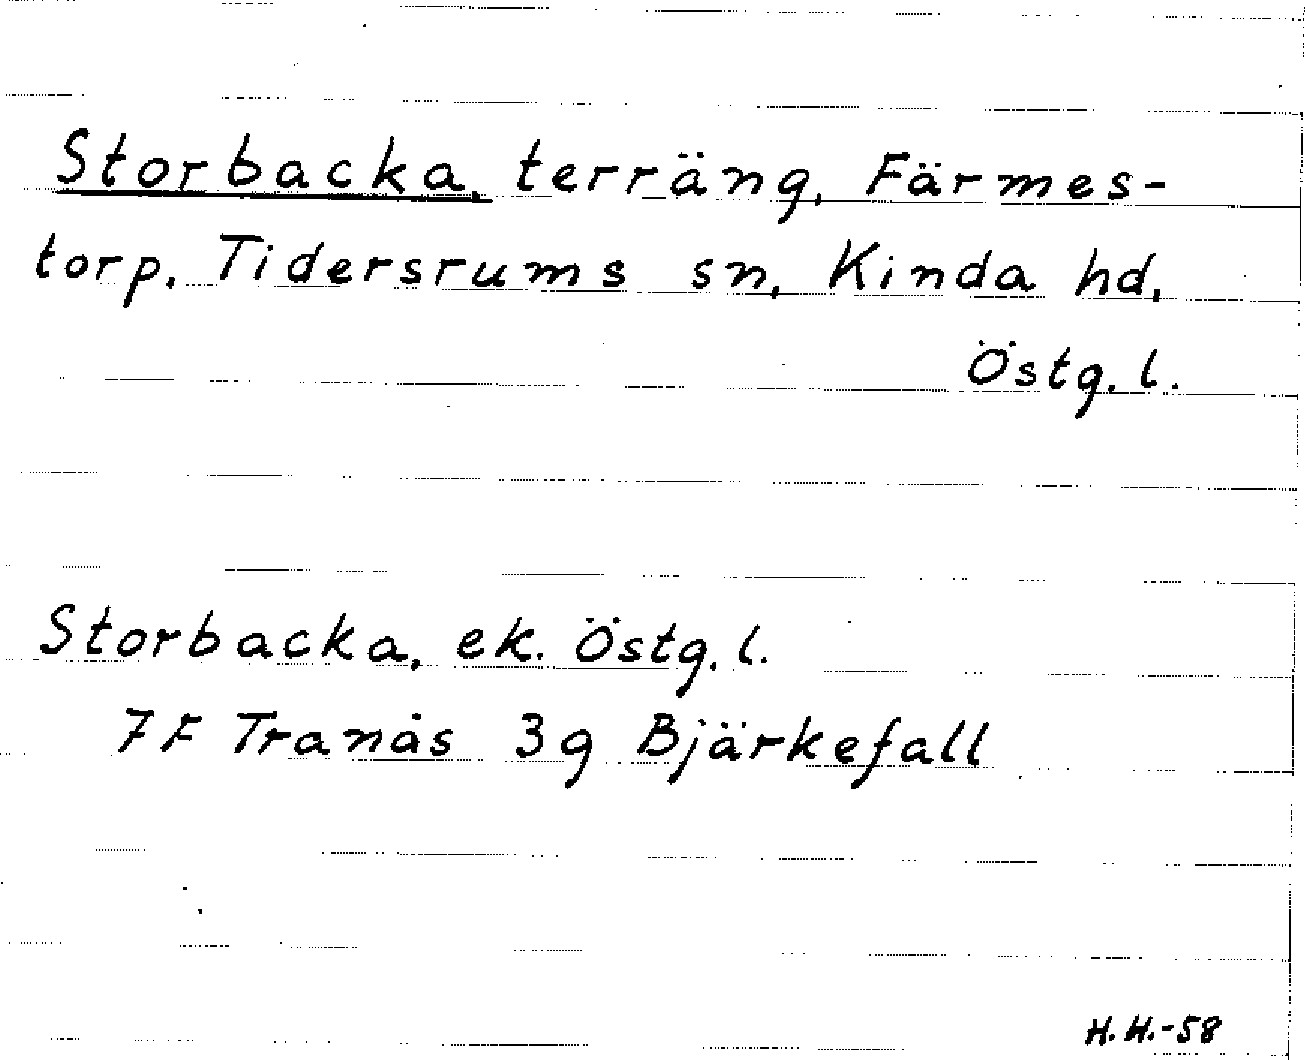 Storbacka, terräng, Färmes-
torp, Tidersrums sn, Kinda hd,
Östg. l.
Storbacka, ek. Östg. l.
7F Tranås 3g Bjärkefall
H.H.-58